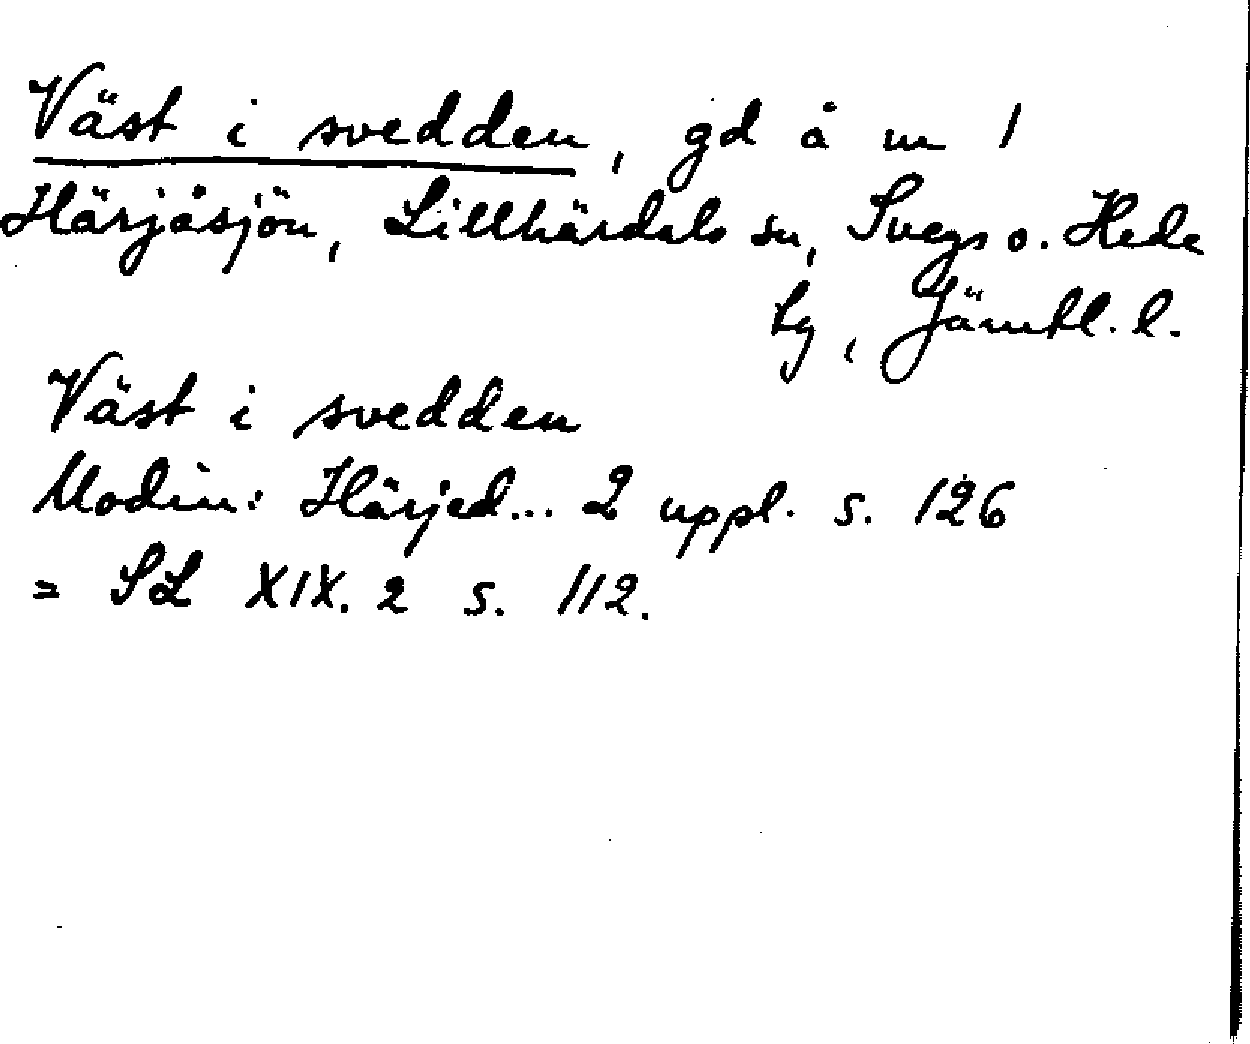 Väst i svedden, gd å nr 1
Härjåsjön, Lillhärdals sn, Svegs o. Hede
tg, Jämtl. l.
Väst i svedden
Modin: Härjed... 2 uppl. s. 126
= SL XIX. 2 s. 112.